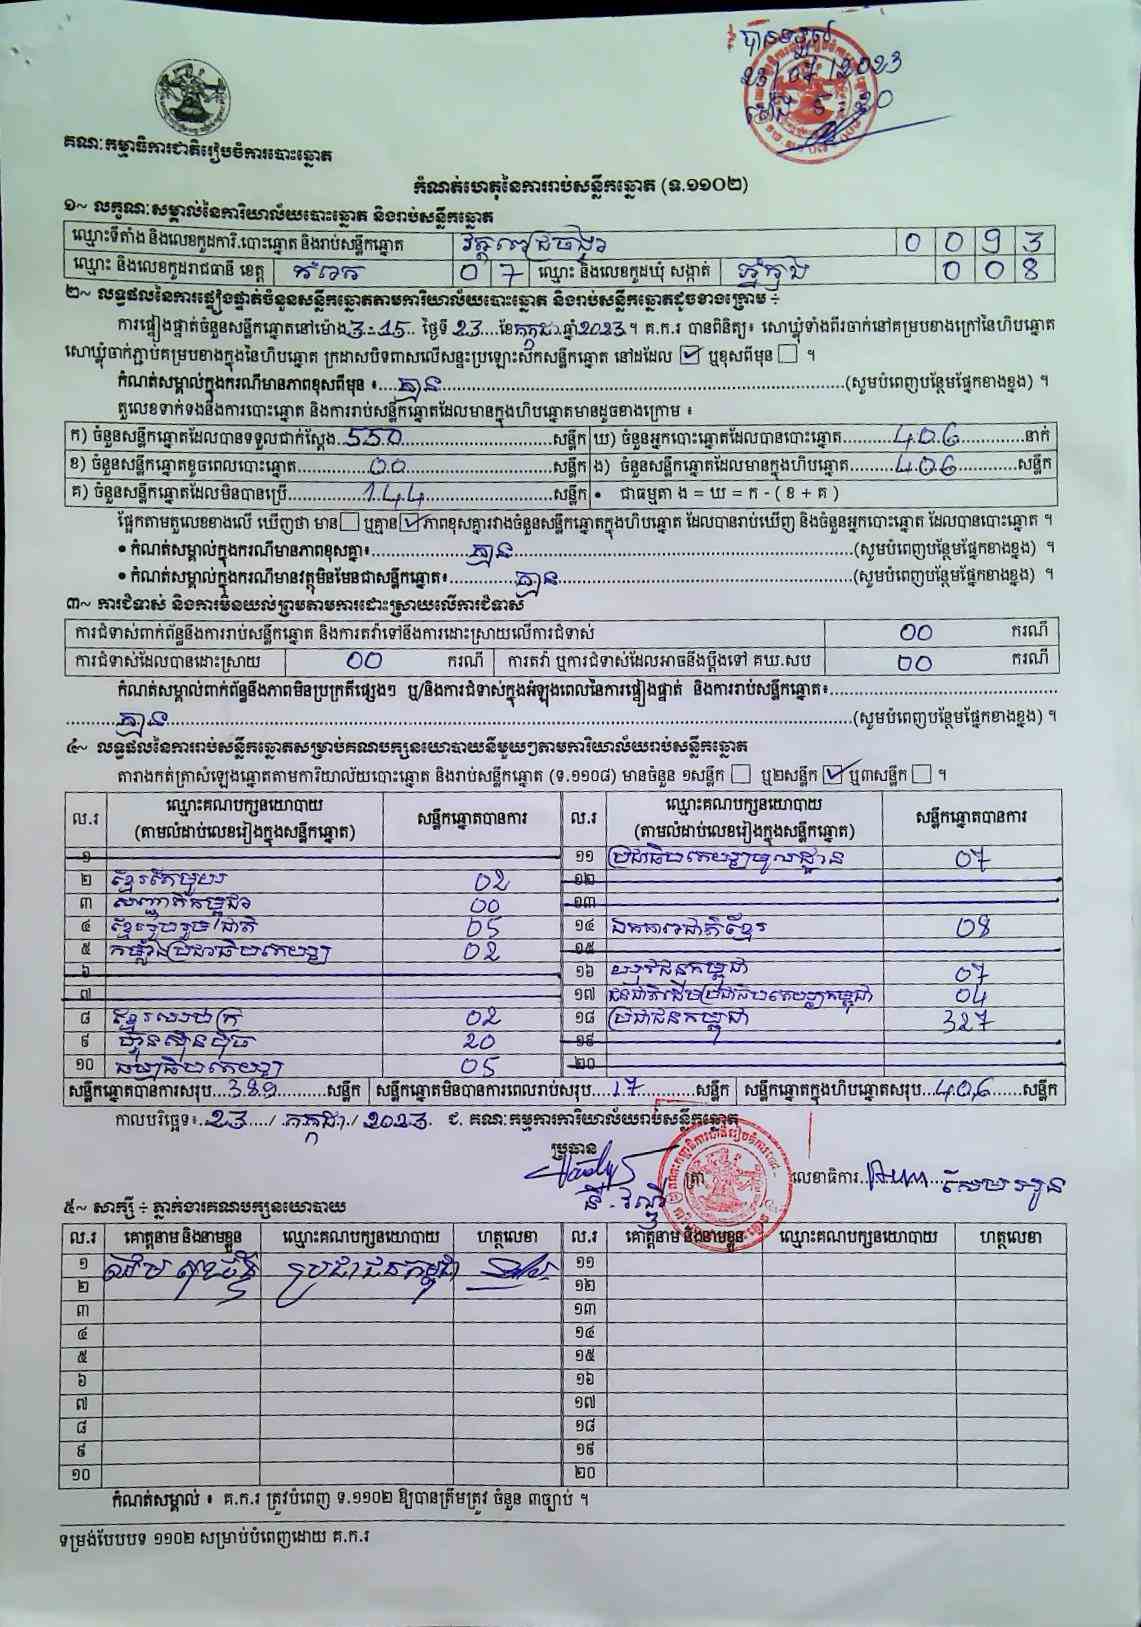 បានទទួល
23/07/2023
ម៉ោង 5 20
គណៈកម្មាធិការជាតិរៀបចំការបោះឆ្នោត
កំណត់ហេតុនៃការរាប់សន្លឹកឆ្នោត (ទ.១១០២)
១~ លក្ខណៈសម្គាល់នៃការិយាល័យបោះឆ្នោត និងរាប់សន្លឹកឆ្នោត
ឈ្មោះទីតាំង និងលេខកូដការិ.បោះឆ្នោត និងរាប់សន្លឹកឆ្នោត វត្ត 0 0 9 3
ឈ្មោះ និងលេខកូដរាជធានី ខេត្ត កំពត 0 7 ឈ្មោះ និងលេខកូដឃុំ សង្កាត់ 0 0 8
២~ លទ្ធផលនៃការផ្ទៀងផ្ទាត់ចំនួនសន្លឹកឆ្នោតតាមការិយាល័យបោះឆ្នោត និងរាប់សន្លឹកឆ្នោតដូចខាងក្រោម ÷
ការផ្ទៀងផ្ទាត់ចំនួនសន្លឹកឆ្នោតនៅម៉ោង 3-15 ថ្ងៃទី 23 ខែ កក្កដា ឆ្នាំ 2023 ។ គ.ក.រ បានពិនិត្យ៖ សោឃ្លុំទាំងពីរចាក់នៅគម្របខាងក្រៅនៃហិបឆ្នោត
សោឃ្លុំចាក់ភ្ជាប់គម្របខាងក្នុងនៃហិបឆ្នោត ក្រដាសបិទពាសលើសន្ទះប្រឡោះសឹកសន្លឹកឆ្នោត នៅដដែល ☑ ឬខុសពីមុន ☐ ។
កំណត់សម្គាល់ក្នុងករណីមានភាពខុសពីមុន ៖ គ្មាន (សូមបំពេញបន្ថែមផ្នែកខាងខ្នង) ។
តួលេខទាក់ទងនឹងការបោះឆ្នោត និងការរាប់សន្លឹកឆ្នោតដែលមានក្នុងហិបឆ្នោតមានដូចខាងក្រោម ៖
ក) ចំនួនសន្លឹកឆ្នោតដែលបានទទួលជាក់ស្តែង 550 សន្លឹក ឃ) ចំនួនអ្នកបោះឆ្នោតដែលបានបោះឆ្នោត 406 នាក់
ខ) ចំនួនសន្លឹកឆ្នោតខូចពេលបោះឆ្នោត 00 សន្លឹក ង) ចំនួនសន្លឹកឆ្នោតដែលមានក្នុងហិបឆ្នោត 406 សន្លឹក
គ) ចំនួនសន្លឹកឆ្នោតដែលមិនបានប្រើ 144 សន្លឹក • ជាធម្មតា ង = ឃ = ក - ( ខ + គ )
ផ្អែកតាមតួលេខខាងលើ ឃើញថា មាន ☐ ឬគ្មាន ☑ ភាពខុសគ្នារវាងចំនួនសន្លឹកឆ្នោតក្នុងហិបឆ្នោត ដែលបានរាប់ឃើញ និងចំនួនអ្នកបោះឆ្នោត ដែលបានបោះឆ្នោត ។
• កំណត់សម្គាល់ក្នុងករណីមានភាពខុសគ្នា៖ គ្មាន (សូមបំពេញបន្ថែមផ្នែកខាងខ្នង) ។
• កំណត់សម្គាល់ក្នុងករណីមានវត្ថុមិនមែនជាសន្លឹកឆ្នោត៖ គ្មាន (សូមបំពេញបន្ថែមផ្នែកខាងខ្នង) ។
៣~ ការជំទាស់ និងការមិនយល់ព្រមតាមការដោះស្រាយលើការជំទាស់
ការជំទាស់ពាក់ព័ន្ធនឹងការរាប់សន្លឹកឆ្នោត និងការតវ៉ាទៅនឹងការដោះស្រាយលើការជំទាស់ 00 ករណី
ការជំទាស់ដែលបានដោះស្រាយ 00 ករណី ការតវ៉ា ឬការជំទាស់ដែលអាចនឹងប្តឹងទៅ គឃ.សប 00 ករណី
កំណត់សម្គាល់ពាក់ព័ន្ធនឹងភាពមិនប្រក្រតីផ្សេងៗ ឬ/និងការជំទាស់ក្នុងអំឡុងពេលនៃការផ្ទៀងផ្ទាត់ និងការរាប់សន្លឹកឆ្នោត៖
គ្មាន (សូមបំពេញបន្ថែមផ្នែកខាងខ្នង) ។
៤~ លទ្ធផលនៃការរាប់សន្លឹកឆ្នោតសម្រាប់គណបក្សនយោបាយនីមួយៗតាមការិយាល័យរាប់សន្លឹកឆ្នោត
តារាងកត់ត្រាសំឡេងឆ្នោតតាមការិយាល័យបោះឆ្នោត និងរាប់សន្លឹកឆ្នោត (ទ.១១០៨) មានចំនួន ១សន្លឹក ☐ ឬ២សន្លឹក ☑ ឬ៣សន្លឹក ☐ ។
ល.រ ឈ្មោះគណបក្សនយោបាយ (តាមលំដាប់លេខរៀងក្នុងសន្លឹកឆ្នោត) សន្លឹកឆ្នោតបានការ ល.រ ឈ្មោះគណបក្សនយោបាយ (តាមលំដាប់លេខរៀងក្នុងសន្លឹកឆ្នោត) សន្លឹកឆ្នោតបានការ
១ ១១ ប្រជាធិបតេយ្យមូលដ្ឋាន 07
២ ខ្មែរតែមួយ 02 ១២
៣ សញ្ជាតិកម្ពុជា 00 ១៣
៤ ខ្មែររួបរួមជាតិ 05 ១៤ ឯកភាពជាតិខ្មែរ 08
៥ កម្លាំងប្រជាធិបតេយ្យ 02 ១៥
៦ ១៦ យុវជនកម្ពុជា 07
៧ ១៧ ជនជាតិដើមប្រជាធិបតេយ្យកម្ពុជា 04
៨ ខ្មែរអភិរក្ស 02 ១៨ ប្រជាជនកម្ពុជា 327
៩ ហ៊្វុនស៊ិនប៉ិច 20 ១៩
១០ ធម្មាធិបតេយ្យ 05 ២០
សន្លឹកឆ្នោតបានការសរុប 389 សន្លឹក សន្លឹកឆ្នោតមិនបានការពេលរាប់សរុប 17 សន្លឹក សន្លឹកឆ្នោតក្នុងហិបឆ្នោតសរុប 406 សន្លឹក
កាលបរិច្ឆេទ៖ 23 / កក្កដា / 2023 ជ. គណៈកម្មការការិយាល័យរាប់សន្លឹកឆ្នោត
ប្រធាន ត្រា លេខាធិការ
៥~ សាក្សី ÷ ភ្នាក់ងារគណបក្សនយោបាយ
ល.រ គោត្តនាម និងនាមខ្លួន ឈ្មោះគណបក្សនយោបាយ ហត្ថលេខា ល.រ គោត្តនាម និងនាមខ្លួន ឈ្មោះគណបក្សនយោបាយ ហត្ថលេខា
១ ប្រជាជនកម្ពុជា ១១
២ ១២
៣ ១៣
៤ ១៤
៥ ១៥
៦ ១៦
៧ ១៧
៨ ១៨
៩ ១៩
១០ ២០
កំណត់សម្គាល់ ៖ គ.ក.រ ត្រូវបំពេញ ទ.១១០២ ឱ្យបានត្រឹមត្រូវ ចំនួន ៣ច្បាប់ ។
ទម្រង់បែបបទ ១១០២ សម្រាប់បំពេញដោយ គ.ក.រ